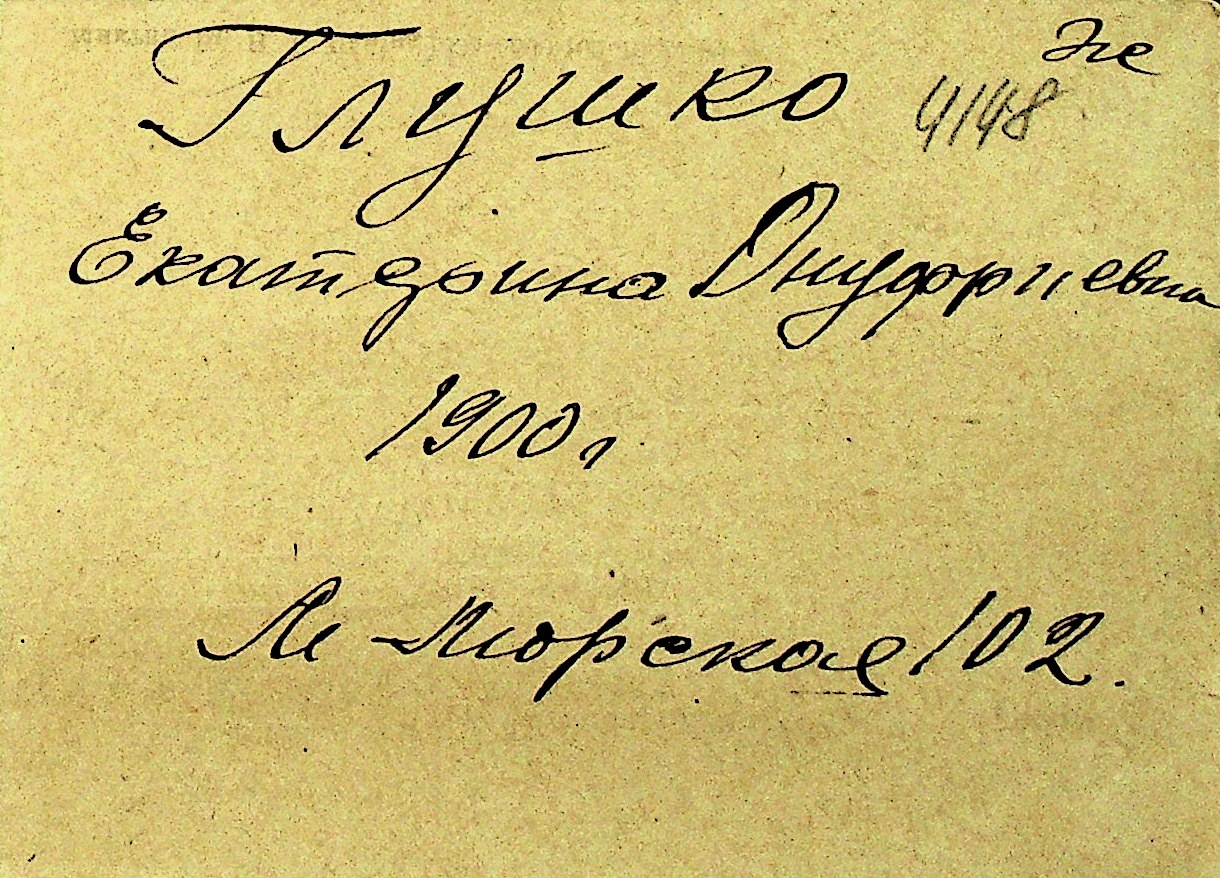 же
Глушко 4148
Екатерина Онуфриевна
1900 г
М-Морская 102.